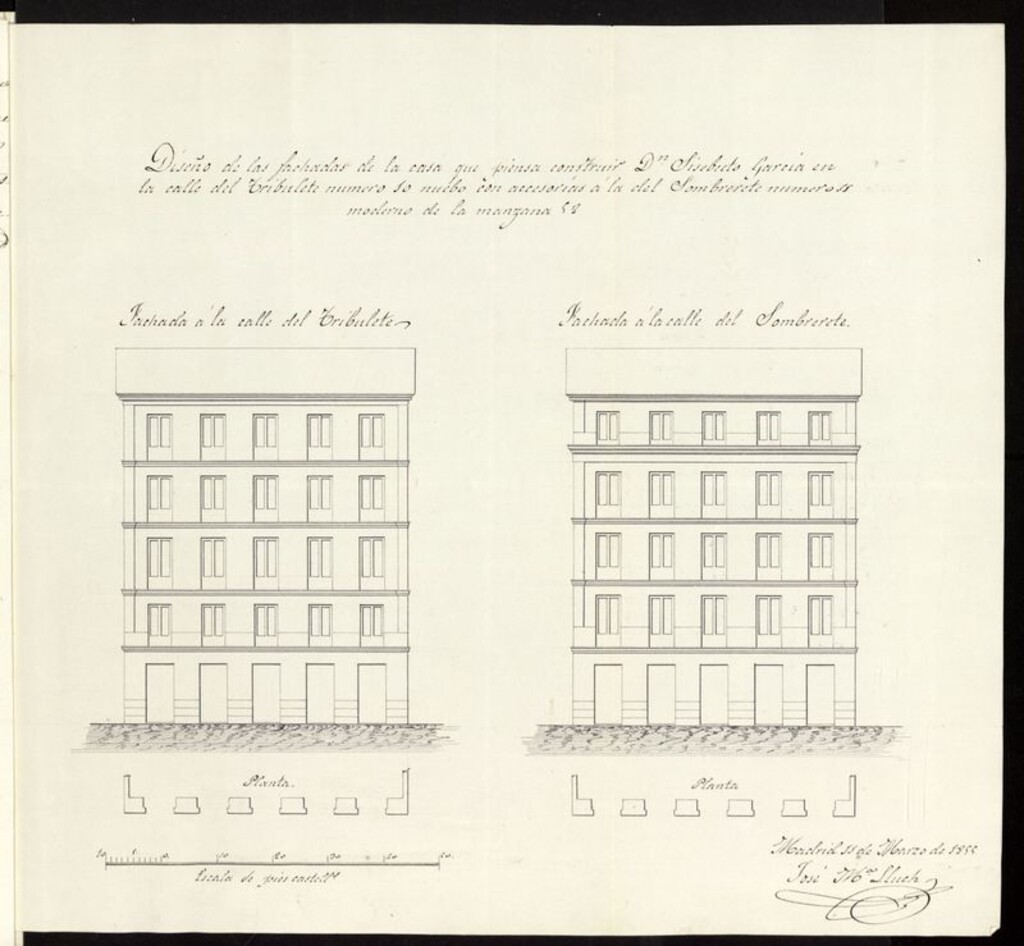 Diseño de las fachadas de la casa que piensa construir Dn Sisebuto Garcia en
la calle del Tribulete numero 10 nuebo con accesorias á la del Sombrerete numero 11
moderno de la manzana 58
Fachada á la calle del Tribulete
Fachada á la calle del Sombrerete.
Planta.
Planta
10 5 0 10 20 30 50
Escala de pies castells
Madrid 11 de Marzo de 1855
José Ma Lluch